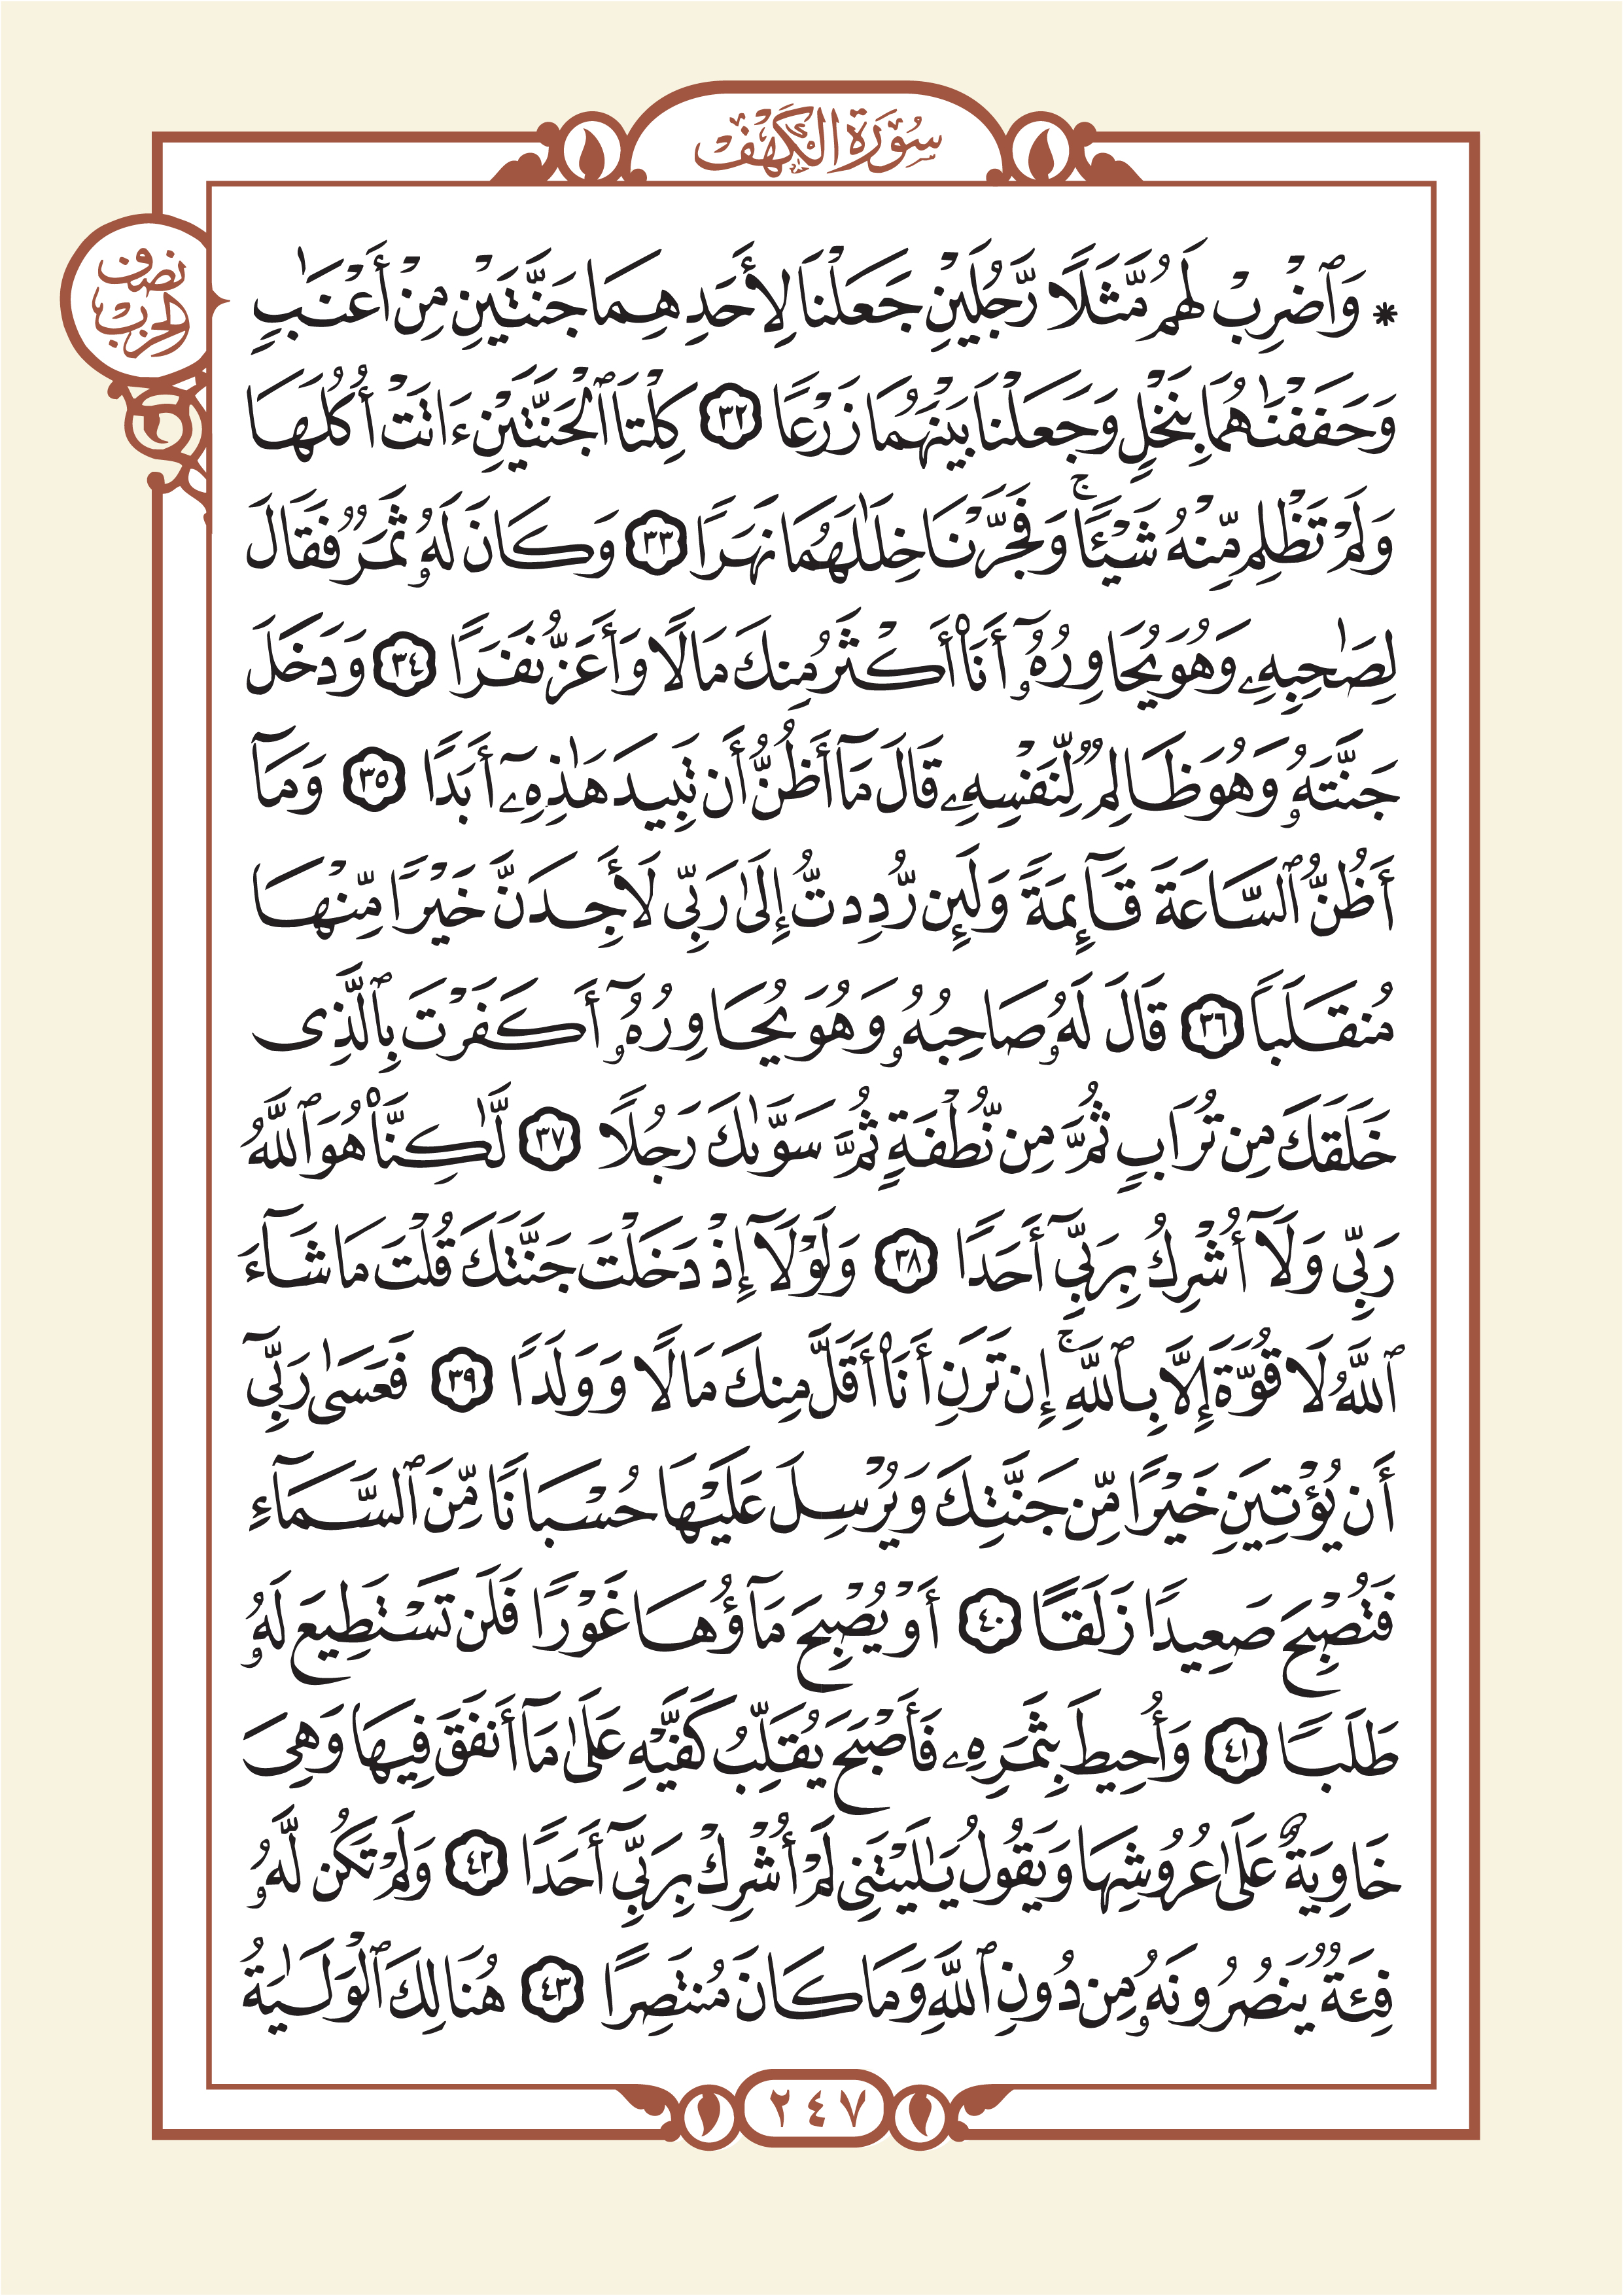 سُورَةُ الكَهْفِ
نصف
الحزب
* وَٱضْرِبْ لَهُم مَّثَلًا رَّجُلَيْنِ جَعَلْنَا لِأَحَدِهِمَا جَنَّتَيْنِ مِنْ أَعْنَٰبٍ
وَحَفَفْنَٰهُمَا بِنَخْلٍ وَجَعَلْنَا بَيْنَهُمَا زَرْعًا ٣٢ كِلْتَا ٱلْجَنَّتَيْنِ ءَاتَتْ أُكُلَهَا
وَلَمْ تَظْلِم مِّنْهُ شَيْـًٔا ۚ وَفَجَّرْنَا خِلَٰلَهُمَا نَهَرًا ٣٣ وَكَانَ لَهُۥ ثَمَرٌ فَقَالَ
لِصَٰحِبِهِۦ وَهُوَ يُحَاوِرُهُۥٓ أَنَا۠ أَكْثَرُ مِنكَ مَالًا وَأَعَزُّ نَفَرًا ٣٤ وَدَخَلَ
جَنَّتَهُۥ وَهُوَ ظَالِمٌ لِّنَفْسِهِۦ قَالَ مَآ أَظُنُّ أَن تَبِيدَ هَٰذِهِۦٓ أَبَدًا ٣٥ وَمَآ
أَظُنُّ ٱلسَّاعَةَ قَآئِمَةً وَلَئِن رُّدِدتُّ إِلَىٰ رَبِّى لَأَجِدَنَّ خَيْرًا مِّنْهَا
مُنقَلَبًا ٣٦ قَالَ لَهُۥ صَاحِبُهُۥ وَهُوَ يُحَاوِرُهُۥٓ أَكَفَرْتَ بِٱلَّذِى
خَلَقَكَ مِن تُرَابٍ ثُمَّ مِن نُّطْفَةٍ ثُمَّ سَوَّىٰكَ رَجُلًا ٣٧ لَّٰكِنَّا۠ هُوَ ٱللَّهُ
رَبِّى وَلَآ أُشْرِكُ بِرَبِّىٓ أَحَدًا ٣٨ وَلَوْلَآ إِذْ دَخَلْتَ جَنَّتَكَ قُلْتَ مَا شَآءَ
ٱللَّهُ لَا قُوَّةَ إِلَّا بِٱللَّهِ ۚ إِن تَرَنِ أَنَا۠ أَقَلَّ مِنكَ مَالًا وَوَلَدًا ٣٩ فَعَسَىٰ رَبِّىٓ
أَن يُؤْتِيَنِ خَيْرًا مِّن جَنَّتِكَ وَيُرْسِلَ عَلَيْهَا حُسْبَانًا مِّنَ ٱلسَّمَآءِ
فَتُصْبِحَ صَعِيدًا زَلَقًا ٤٠ أَوْ يُصْبِحَ مَآؤُهَا غَوْرًا فَلَن تَسْتَطِيعَ لَهُۥ
طَلَبًا ٤١ وَأُحِيطَ بِثَمَرِهِۦ فَأَصْبَحَ يُقَلِّبُ كَفَّيْهِ عَلَىٰ مَآ أَنفَقَ فِيهَا وَهِىَ
خَاوِيَةٌ عَلَىٰ عُرُوشِهَا وَيَقُولُ يَٰلَيْتَنِى لَمْ أُشْرِكْ بِرَبِّىٓ أَحَدًا ٤٢ وَلَمْ تَكُن لَّهُۥ
فِئَةٌ يَنصُرُونَهُۥ مِن دُونِ ٱللَّهِ وَمَا كَانَ مُنتَصِرًا ٤٣ هُنَالِكَ ٱلْوَلَٰيَةُ
٢٤٧